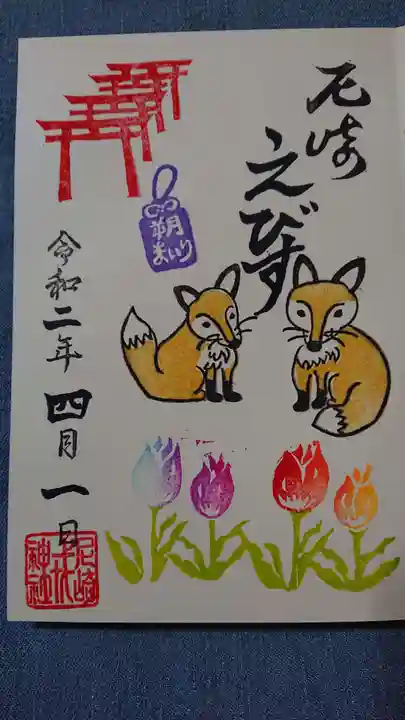 尼崎
えびす
朔月
まいり
令和二年四月一日
尼崎
神社